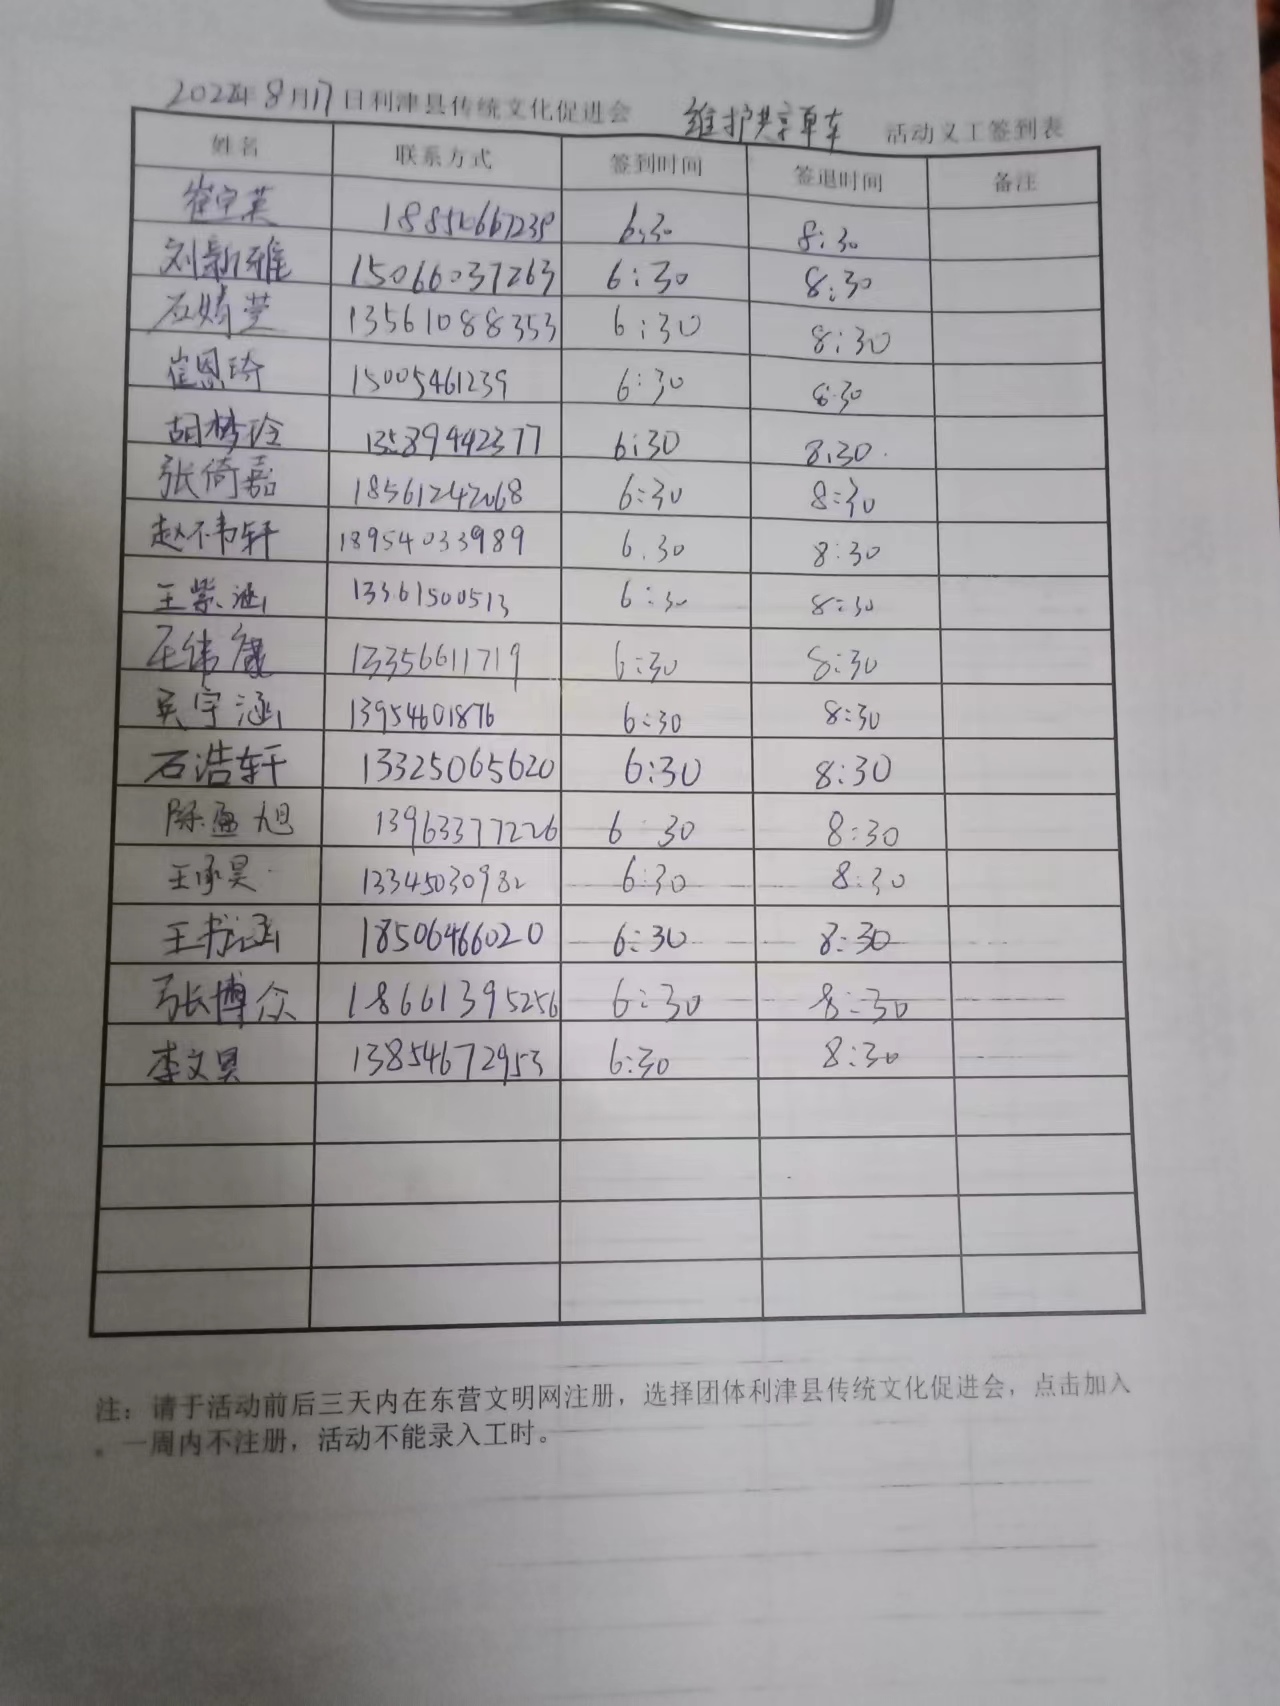 2022年8月17日利津县传统文化促进会 维护共享单车 活动义工签到表
姓名 联系方式 签到时间 签退时间 备注
崔宝英 6:30 8:30
刘新雅 15066037263 6:30 8:30
石婧萱 13561088353 6:30 8:30
崔恩琦 15005461239 6:30 8:30
胡梦玲 13589442377 6:30 8:30
张倚嘉 18561242068 6:30 8:30
赵 轩 18954033989 6.30 8:30
王紫涵 13361500513 6:30 8:30
王纬康 13356611719 6:30 8:30
吴宇涵 13954601876 6:30 8:30
石浩轩 13325065620 6:30 8:30
陈 旭 13963377226 6 30 8:30
王承昊 13345030982 6:30 8:30
王书涵 18506466020 6:30 8:30
张博众 18661395256 6:30 8:30
李文昊 13854672953 6:30 8:30
注：请于活动前后三天内在东营文明网注册，选择团体利津县传统文化促进会，点击加入
。一周内不注册，活动不能录入工时。